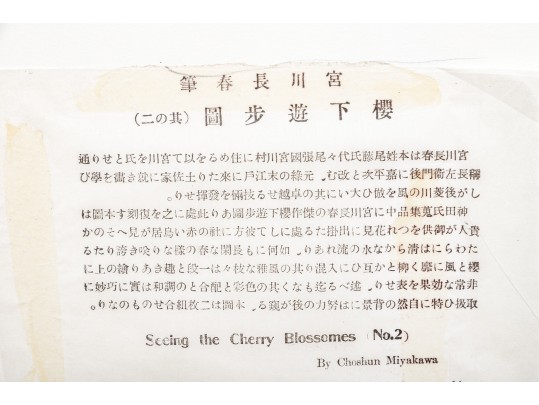 宮川長春筆
櫻下遊歩圖 (其の二)
宮川長春は本姓尾藤氏代々尾張國宮川村に住めるを以て宮川を氏とせり通
稱長左衛門後に喜平次と改む。元祿の末江戸に來たり土佐家に就き畫を學び
しが後菱川の風を倣ひ大いに其の卓越せる技倆を發揮せり。
神田氏蒐集品中に宮川長春の傑作櫻下遊歩圖あり此處に之を復刻す本圖は
貴人が御供をつれ花見に出掛けたる處にして彼方に社の赤い鳥居が見へそのか
たわらには清らかな水の流れあり。如何にも長閑な春の樣なり咲き誇りたる
櫻と風に靡く柳とが互ひに入混り其の風雅な枝々は一段と趣きあり繪の上に
非常な効果を表せり。述べる迄もなく其の色彩と配合との調和は實に巧妙に
取扱ひ特に自然の背景には努力の後が窺る。本圖は二枚組合せものなり。
Seeing the Cherry Blossomes (No.2)
By Choshun Miyakawa